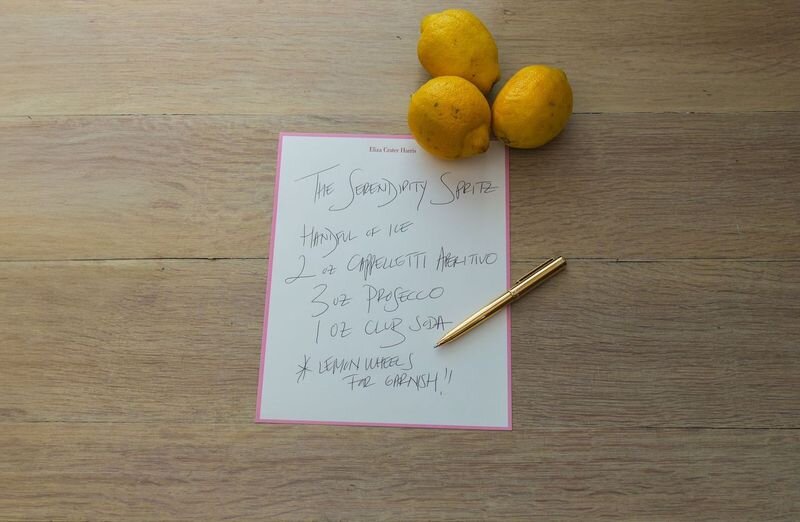 Eliza Crater Harris
THE SERENDIPITY SPRITZ
HANDFUL OF ICE
2 OZ CAPPELLETTI APERITIVO
3 OZ PROSECCO
1 OZ CLUB SODA
* LEMON WHEELS
FOR GARNISH!!